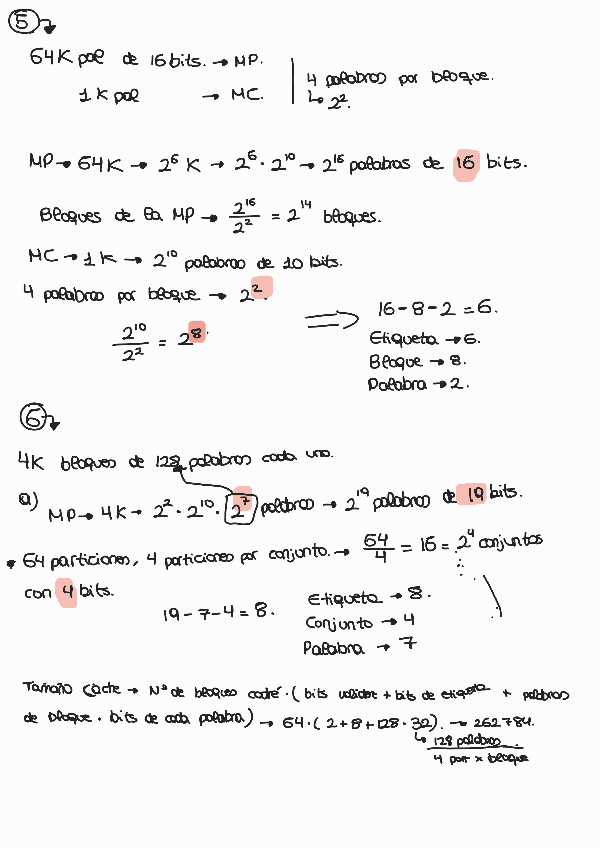 5
64K pal de 16 bits. → MP.
1K pal → MC.
4 palabras por bloque.
↳ 2².
MP → 64K → 2⁶ K → 2⁶ · 2¹⁰ → 2¹⁶ palabras de 16 bits.
Bloques de la MP → 2¹⁶/2² = 2¹⁴ bloques.
MC → 1K → 2¹⁰ palabras de 10 bits.
4 palabras por bloque → 2².
2¹⁰/2² = 2⁸.
16 - 8 - 2 = 6.
Etiqueta → 6.
Bloque → 8.
Palabra → 2.
6
4K bloques de 128 palabras cada uno.
a) MP → 4K → 2² · 2¹⁰ · 2⁷ palabras → 2¹⁹ palabras de 19 bits.
• 64 particiones, 4 particiones por conjunto. → 64/4 = 16 = 2⁴ conjuntos
con 4 bits.
19 - 7 - 4 = 8.
Etiqueta → 8.
Conjunto → 4
Palabra → 7
Tamaño Cache → Nº de bloques caché · ( bits validez + bits de etiqueta + palabras
de bloque · bits de cada palabra) → 64 · ( 2 + 8 + 128 · 32). → 262784.
↳ 128 palabras.
4 part x bloque